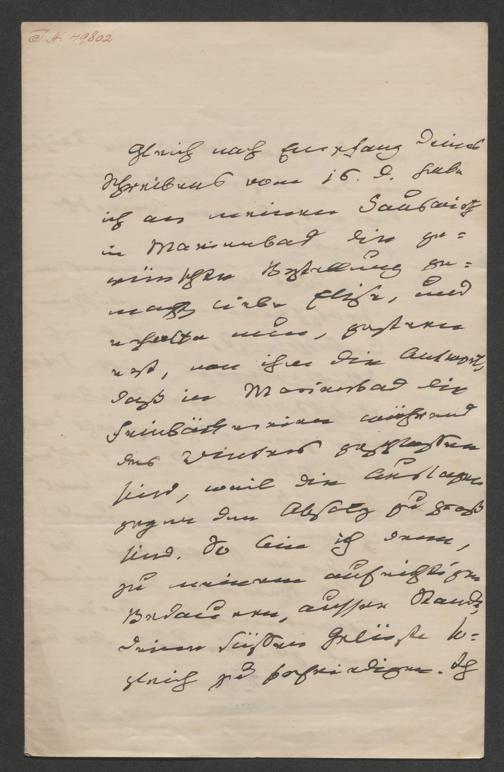 I. N. 49802
Gleich nach Empfang Deines
Schreibens vom 16. d. habe
ich an meinen Hauswirth
in Marienbad die ge=
wünschte Bestellung ge=
macht liebe Elise, und
erhalte nun, gestern
erst, von ihm die Antwort,
daß in Marienbad die
Feinbäckereien während
des Winters geschlossen
sind, weil die Auslagen
gegen den Absatz zu groß
sind. So bin ich denn,
zu meinem aufrichtigen
Bedauern, ausser Stande,
Deine süßen Gelüste so=
gleich zu befriedigen. Ich